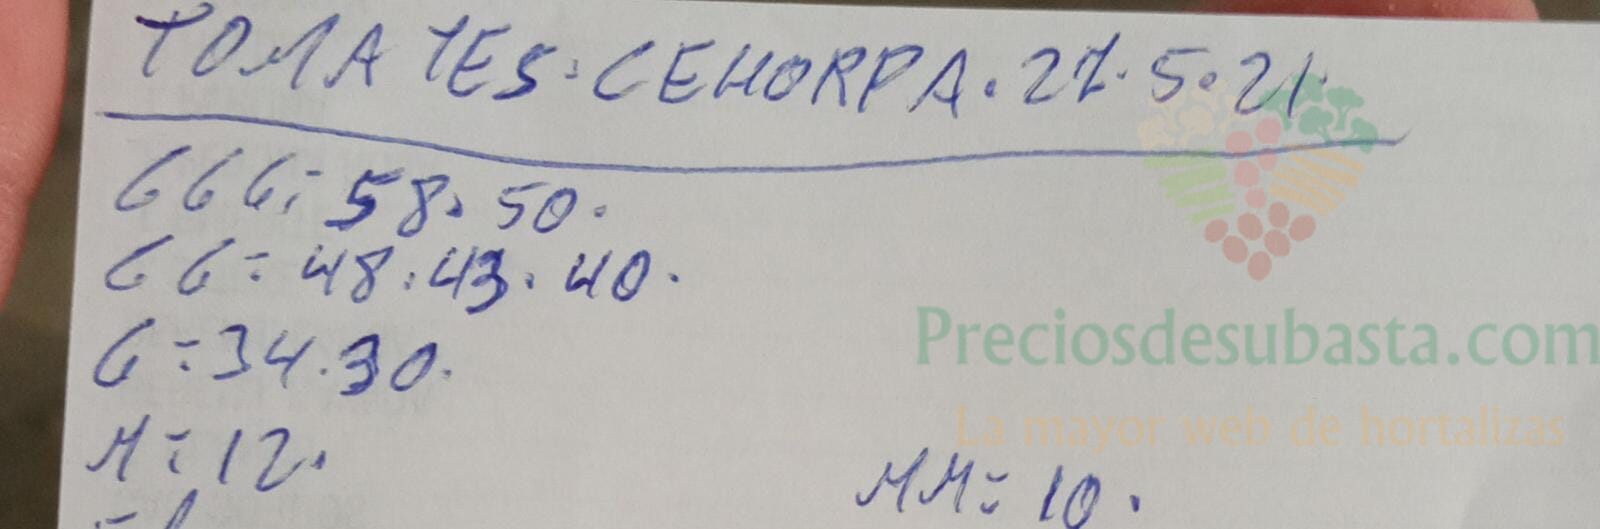 TOMATES. CEHORPA. 27. 5. 21.
GGG: 58. 50.
GG: 48. 43. 40.
G: 34. 30.
M: 12.
MM: 10.
Preciosdesubasta.com
La mayor web de hortalizas